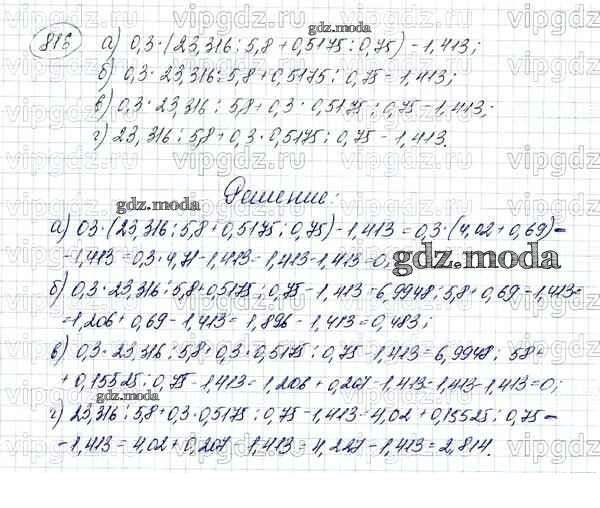 816
а) 0,3·(23,316:5,8+0,5175:0,75)-1,413;
б) 0,3·23,316:5,8+0,5175:0,75-1,413;
в) 0,3·23,316:5,8+0,3·0,5175:0,75-1,413;
г) 23,316:5,8+0,3·0,5175:0,75-1,413.
Решение:
а) 0,3·(23,316:5,8+0,5175:0,75)-1,413=0,3·(4,02+0,69)-
-1,413=0,3·4,71-1,413=1,413-1,413=0,
б) 0,3·23,316:5,8+0,5175:0,75-1,413=6,9948:5,8+0,69-1,413=
=1,206+0,69-1,413=1,896-1,413=0,483;
в) 0,3·23,316:5,8+0,3·0,5175:0,75-1,413=6,9948:58+
+0,15525:0,75-1,413=1,206+0,207-1,413=1,413-1,413=0;
г) 23,316:5,8+0,3·0,5175:0,75-1,413=4,02+0,15525:0,75-
-1,413=4,02+0,207-1,413=4,227-1,413=2,814.
gdz.moda
gdz.moda
gdz.moda
gdz.moda
gdz.moda
vipgdz.ru